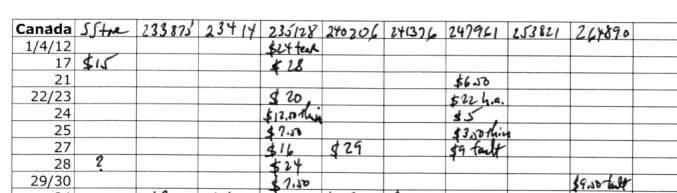 Canada SStre 233875 23414 235128 240206 241376 247961 253821 264890
1/4/12 $24 tear
17 $15 $28
21 $6.50
22/23 $20 $22 h.a.
24 $12.50 thin $5
25 $7.50 $3.50 thin
27 $16 $29 $9 fault
28 ? $24
29/30 $7.50 $9.50 fault